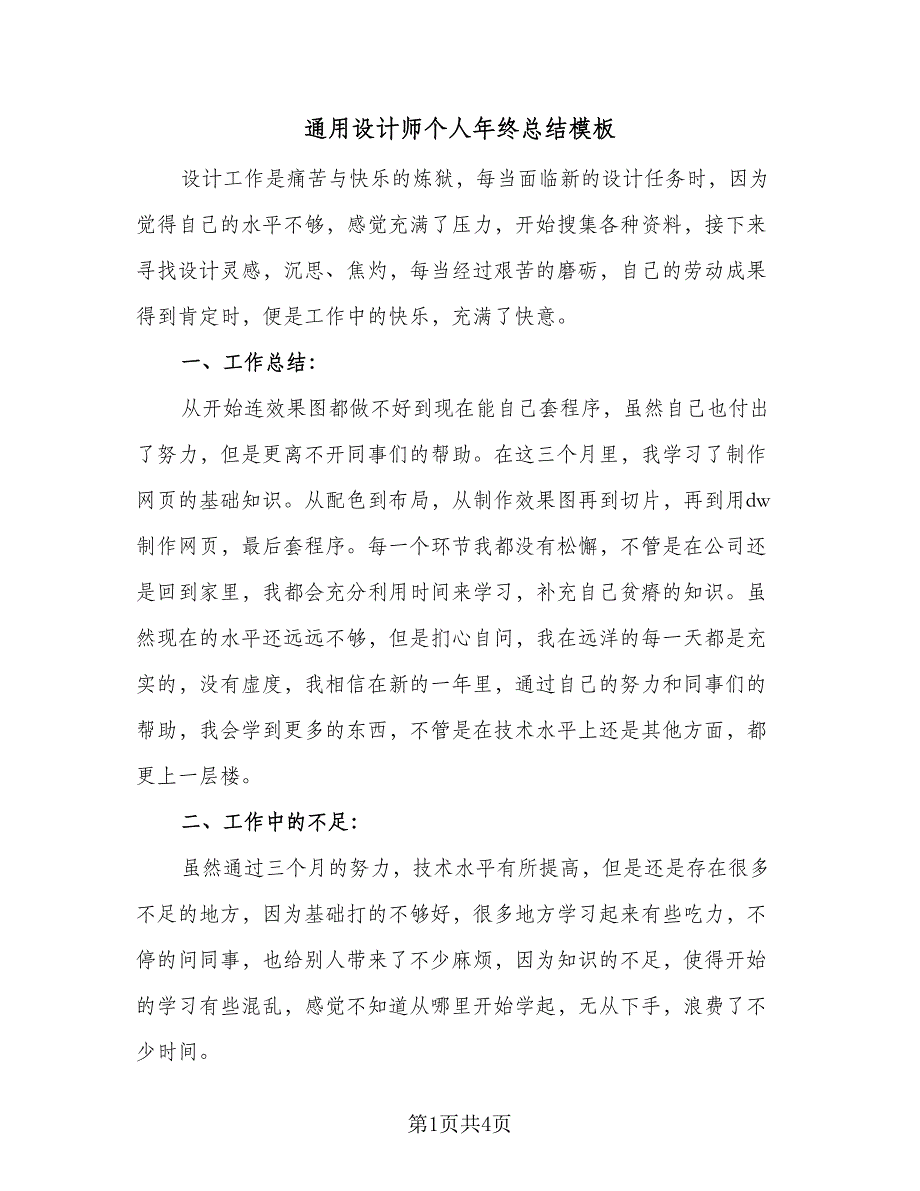 通用设计师个人年终总结模板
设计工作是痛苦与快乐的炼狱，每当面临新的设计任务时，因为
觉得自己的水平不够，感觉充满了压力，开始搜集各种资料，接下来
寻找设计灵感，沉思、焦灼，每当经过艰苦的磨砺，自己的劳动成果
得到肯定时，便是工作中的快乐，充满了快意。
一、工作总结：
从开始连效果图都做不好到现在能自己套程序，虽然自己也付出
了努力，但是更离不开同事们的帮助。在这三个月里，我学习了制作
网页的基础知识。从配色到布局，从制作效果图再到切片，再到用dw
制作网页，最后套程序。每一个环节我都没有松懈，不管是在公司还
是回到家里，我都会充分利用时间来学习，补充自己贫瘠的知识。虽
然现在的水平还远远不够，但是扪心自问，我在远洋的每一天都是充
实的，没有虚度，我相信在新的一年里，通过自己的努力和同事们的
帮助，我会学到更多的东西，不管是在技术水平上还是其他方面，都
更上一层楼。
二、工作中的不足：
虽然通过三个月的努力，技术水平有所提高，但是还是存在很多
不足的地方，因为基础打的不够好，很多地方学习起来有些吃力，不
停的问同事，也给别人带来了不少麻烦，因为知识的不足，使得开始
的学习有些混乱，感觉不知道从哪里开始学起，无从下手，浪费了不
少时间。
第1页共4页